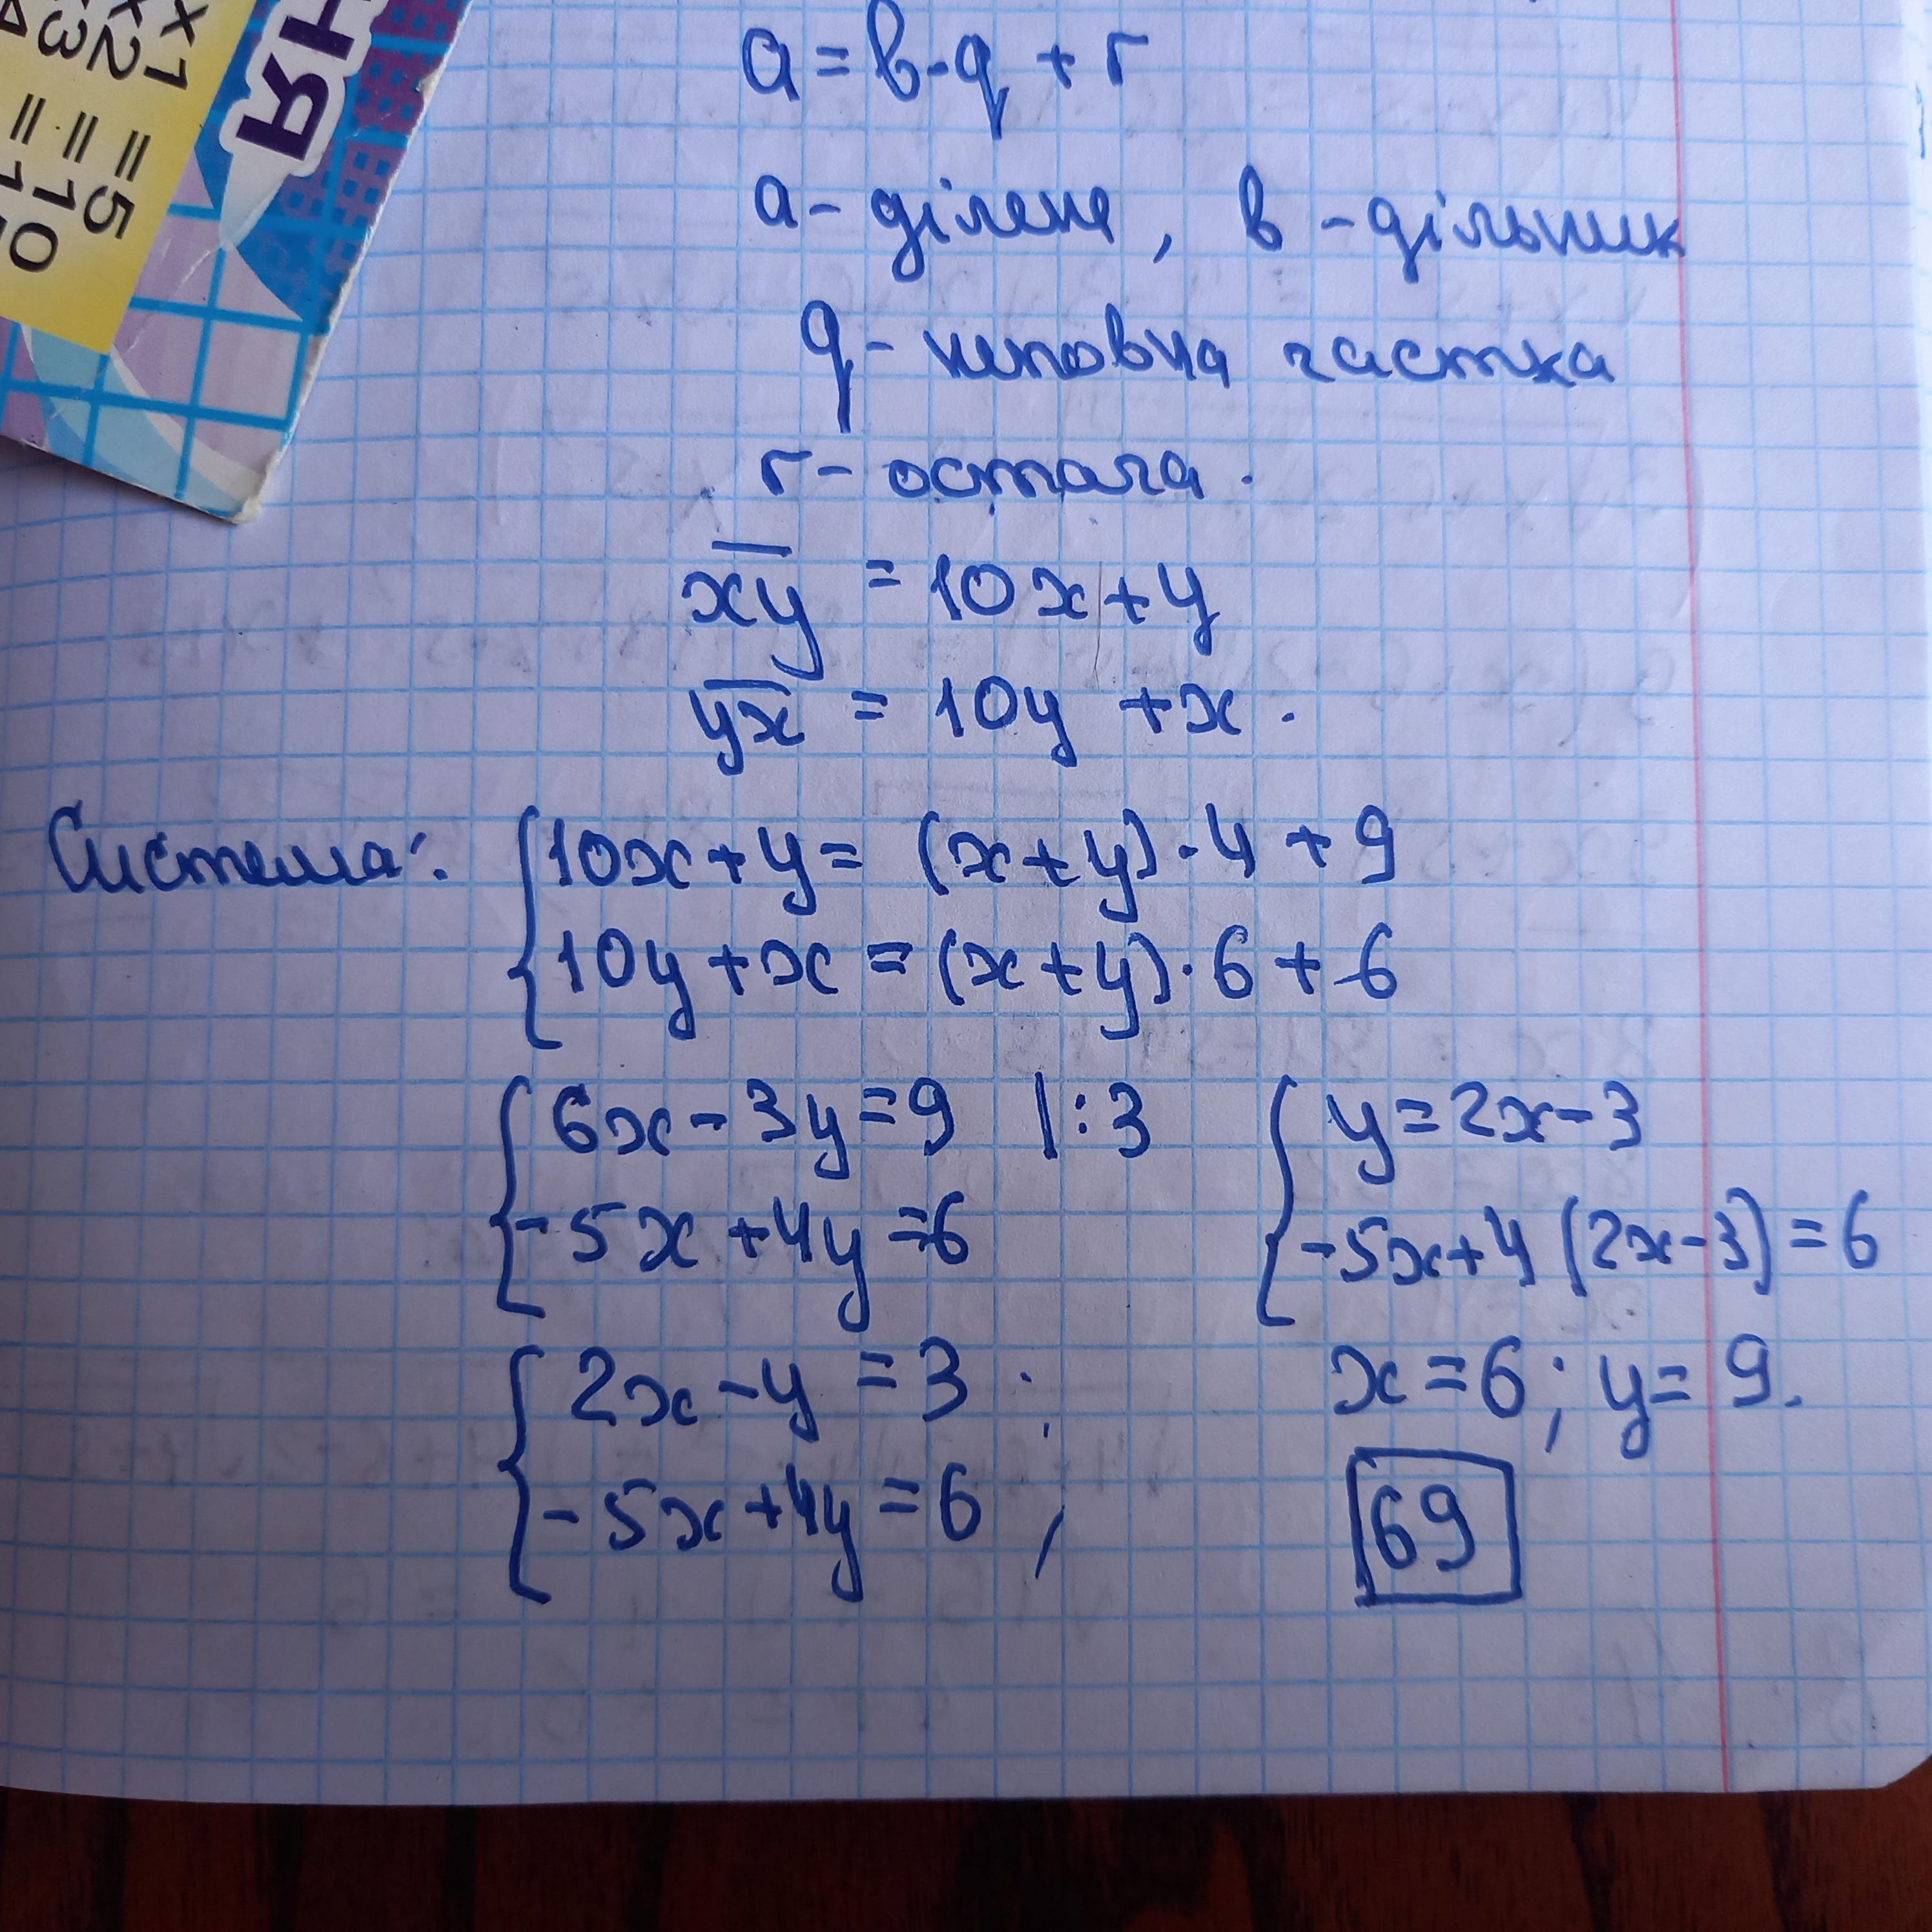 ня
x1 = 5
x2 = 10
a = b · q + r
a - ділене, b - дільник
q - неповна частка
r - остача.
x̅y̅ = 10x + y
y̅x̅ = 10y + x.
Система: { 10x + y = (x + y) · 4 + 9
10y + x = (x + y) · 6 + 6
{ 6x - 3y = 9 | : 3
-5x + 4y = 6
{ 2x - y = 3 ;
-5x + 4y = 6 ,
{ y = 2x - 3
-5x + 4 (2x - 3) = 6
x = 6 ; y = 9.
69